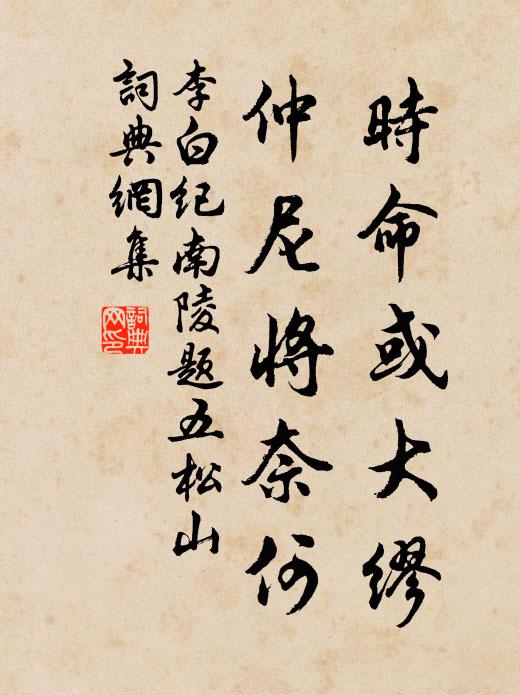 時命或大繆
仲尼將奈何
李白纪南陵題五松山
詞典網集
詞典网印